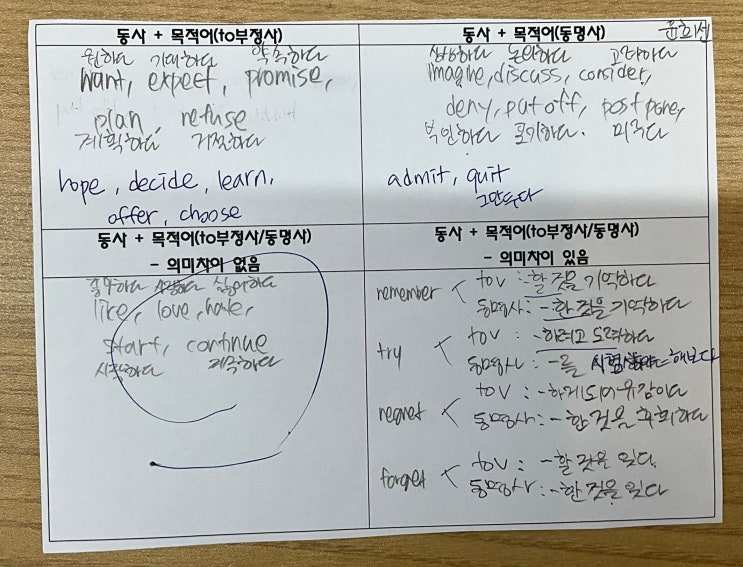 동사 + 목적어(to부정사)
원하다 기대하다 약속하다
want, expect, promise,
plan, refuse
계획하다 거절하다
hope, decide, learn,
offer, choose
동사 + 목적어(동명사)
윤희선
상상하다 논의하다 고려하다
imagine, discuss, consider,
deny, put off, postpone,
부인하다 포기하다. 미루다
admit, quit
그만두다
동사 + 목적어(to부정사/동명사)
- 의미차이 없음
좋아하다 사랑하다 싫어하다
like, love, hate,
start, continue
시작하다 계속하다
동사 + 목적어(to부정사/동명사)
- 의미차이 있음
remember < toV : -할 것을 기억하다
동명사 : -한 것을 기억하다
try < toV : -하려고 노력하다
동명사 : -를 시험삼아 해보다
regret < toV : -하게되어 유감이다
동명사 : -한 것을 후회하다
forget < toV : -할 것을 잊다.
동명사 : -한 것을 잊다